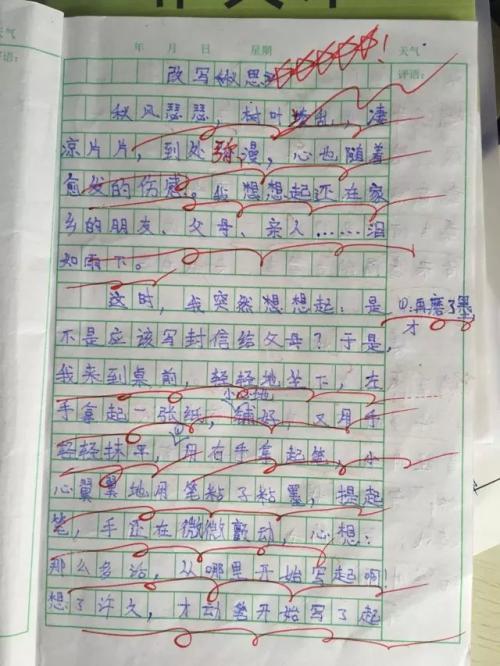 年 月 日 星期 天气
天气
评语:
评语:
改写《秋思》
秋风瑟瑟,树叶 ,凄
凉片片,到处弥漫,心也随着
愈发的伤感。我想想起还在家
乡的朋友、父母、亲人……泪
如雨下。
这时,我突然想想起:是
不是应该写封信给父母?于是,
我来到桌前,轻轻地坐下,左
手拿起一张纸,铺好,又用手
轻轻抹平,用右手拿起笔,小
心翼翼地用笔粘了粘墨,提起
笔,手还在微微颤动,心想:
那么多话,从哪里开始写起啊!
想了许久,才动笔开始写了起
①再磨了墨,
才